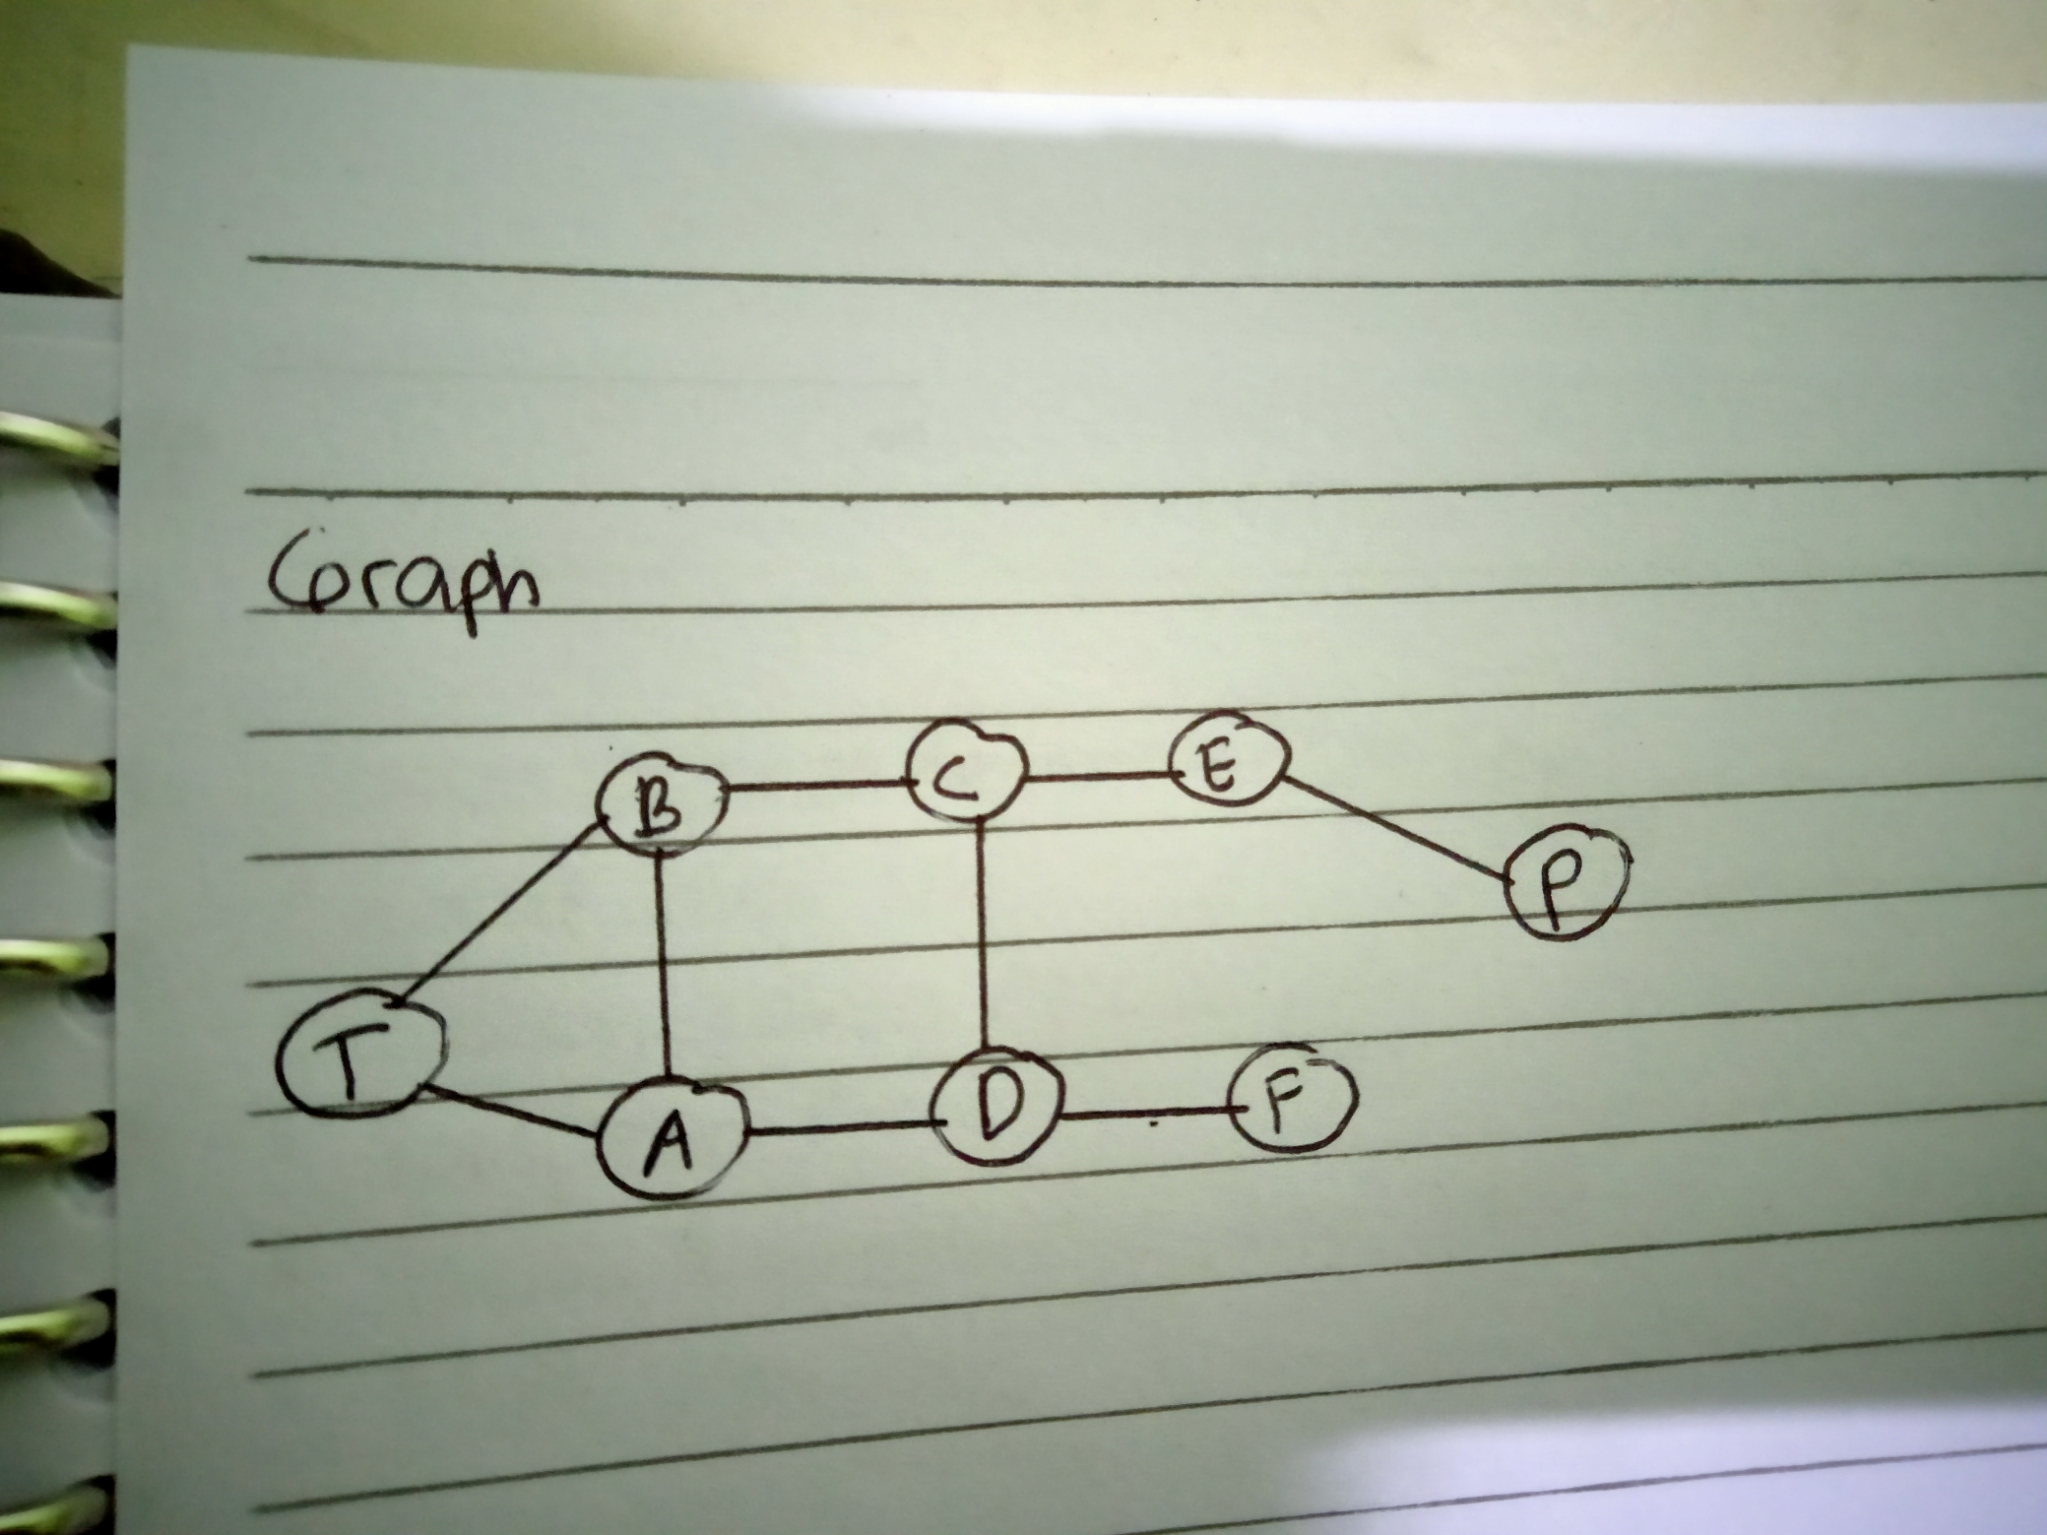 Graph
B C E
P
T
A D F